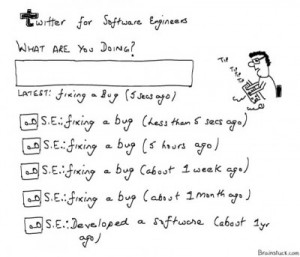 twitter for Software Engineers
WHAT ARE YOU DOING?
LATEST: fixing a bug (5 secs ago)
S.E.: fixing a bug (less than 5 secs ago)
S.E.: fixing a bug (5 hours ago)
S.E.: fixing a bug (about 1 week ago)
S.E.: fixing a bug (about 1 month ago)
S.E.: Developed a software (about 1yr
ago)
Brainstuck.com